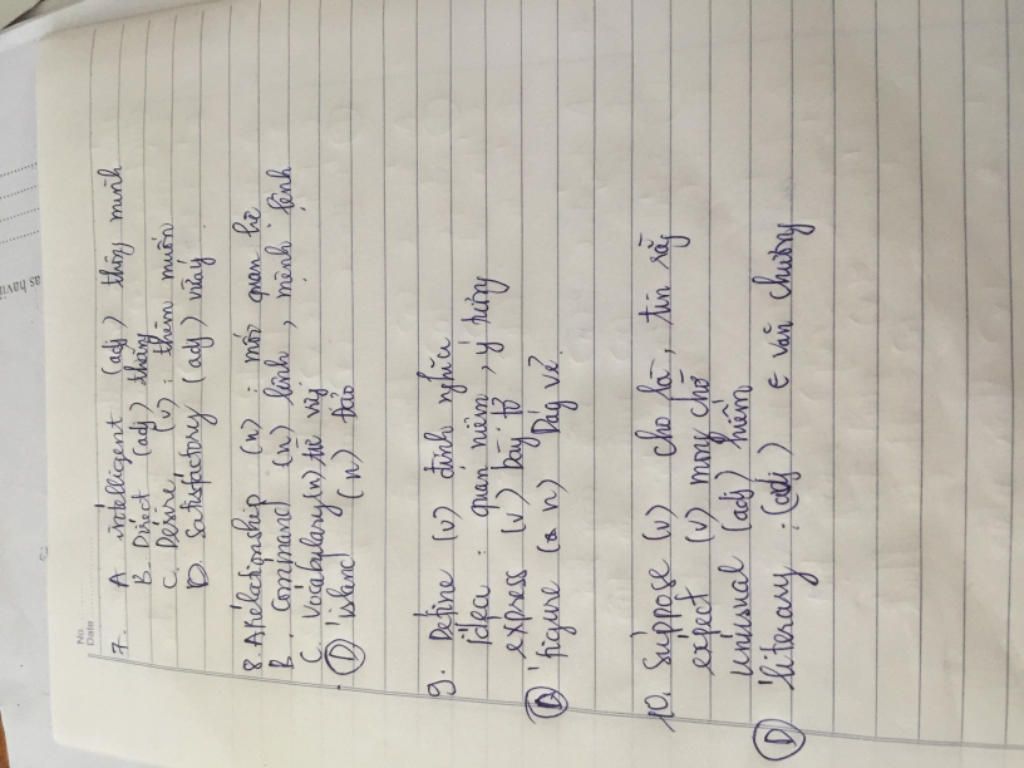 No.
Date
7. A intelligent (adj) thông minh
B. Direct (adj) thẳng
C. Desire (v): thèm muốn
D. Satisfactory (adj)
8. A Relationship (n): mối quan hệ
B. Command (n) lệnh, mệnh lệnh
C. Vocabulary (n) từ vựng
D 'island (n) đảo
9. Define (v) định nghĩa
idea: quan niệm, ý tưởng
express (v) bày tỏ
D 'figure (n) Dáng vẻ
10. Suppose (v) cho là, tin rằng
expect (v) mong chờ
unusual (adj) hiếm
D 'literary (adj) văn chương
as havi